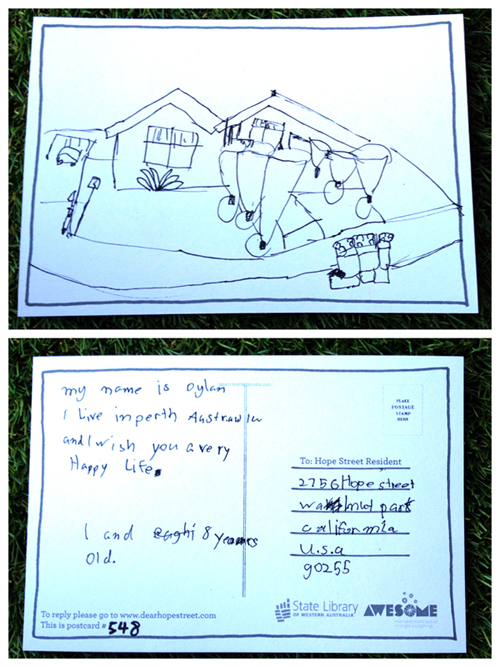 my name is Dylan
I Live in perth Austrawlu
and I wish you a very
Happy Life.
I and eaghi 8 yeanrs
Old.
To reply please go to www.dearhopestreet.com
This is postcard # 548
PLACE
POSTAGE
STAMP
HERE
To: Hope Street Resident
2756 Hope street
walnut park
california
U.s.a
90255
State Library
OF WESTERN AUSTRALIA
AWESOME